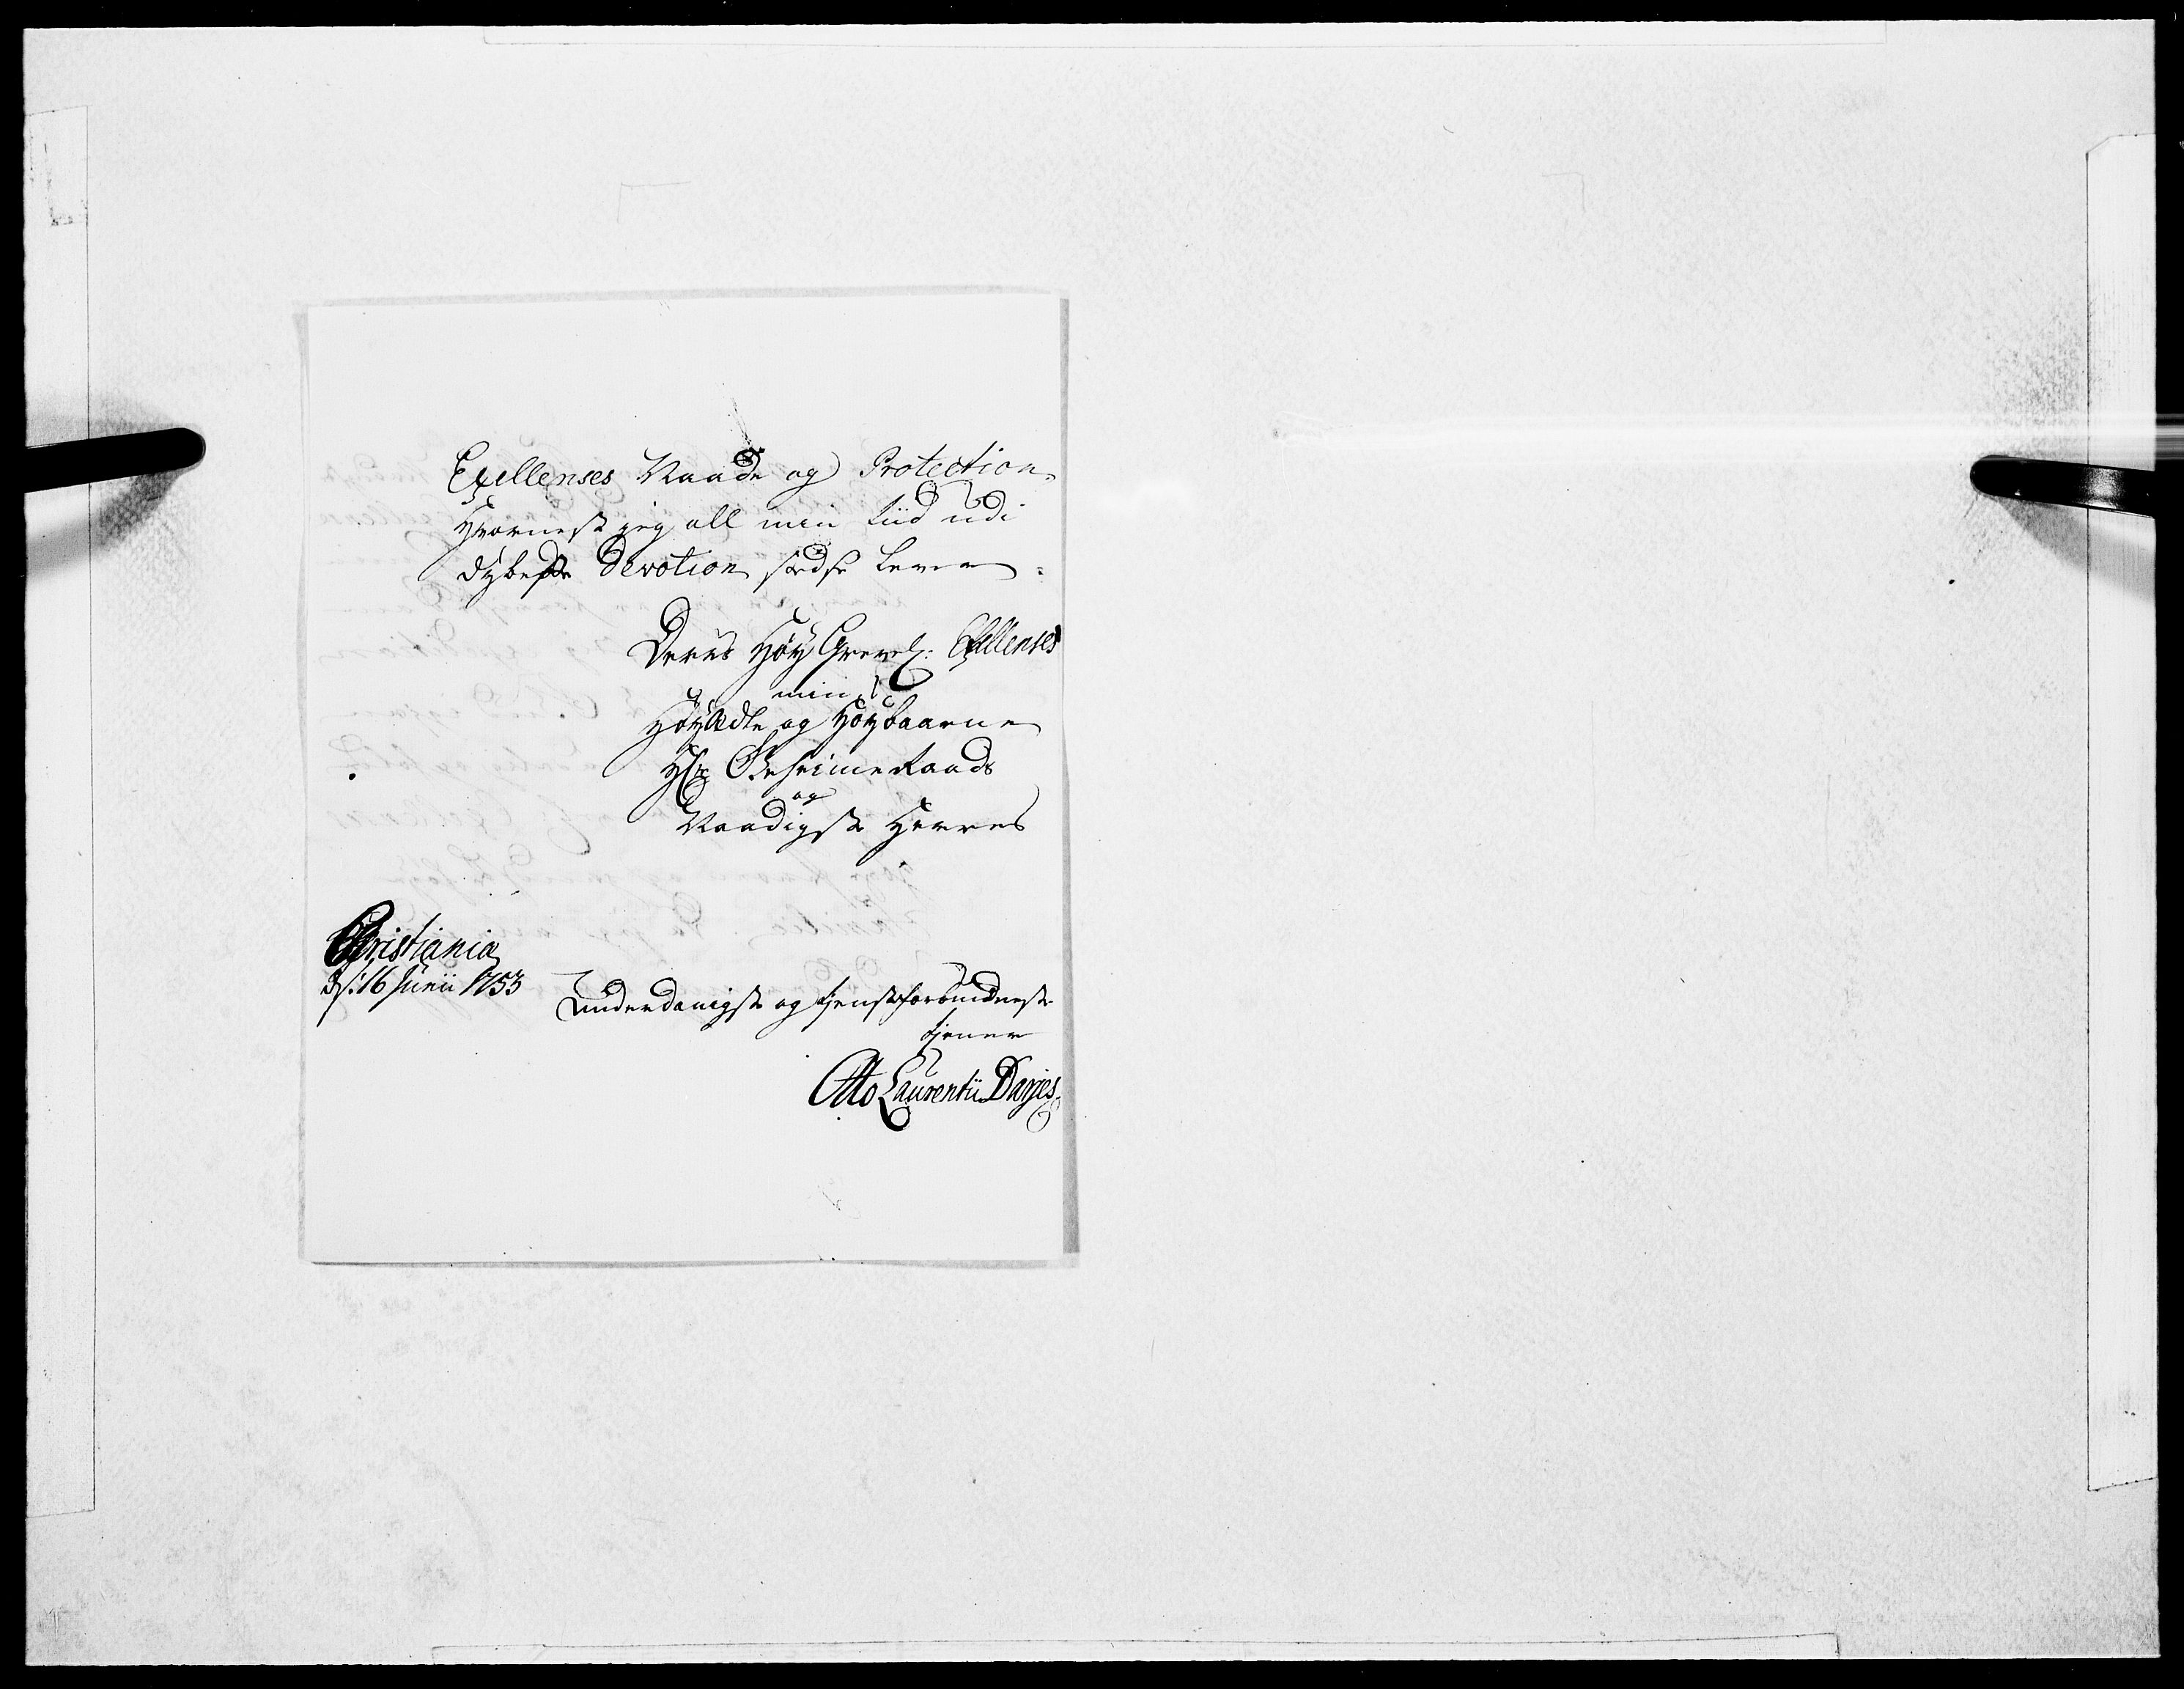 Exellenses Naade og Protection,
Hvornest jeg all min tiid udi
dybeste Devotion stedse lever
Deres Høy Grevel: Exellenses
min
HøyÆdle og Høybaarne
Hr Geheime Raads
og
Naadigste Herres
Christiania
ds: 16 Junii 1753
Underdanigste og tjenstforbundneste
tjener
Otto Laurentii Darjes